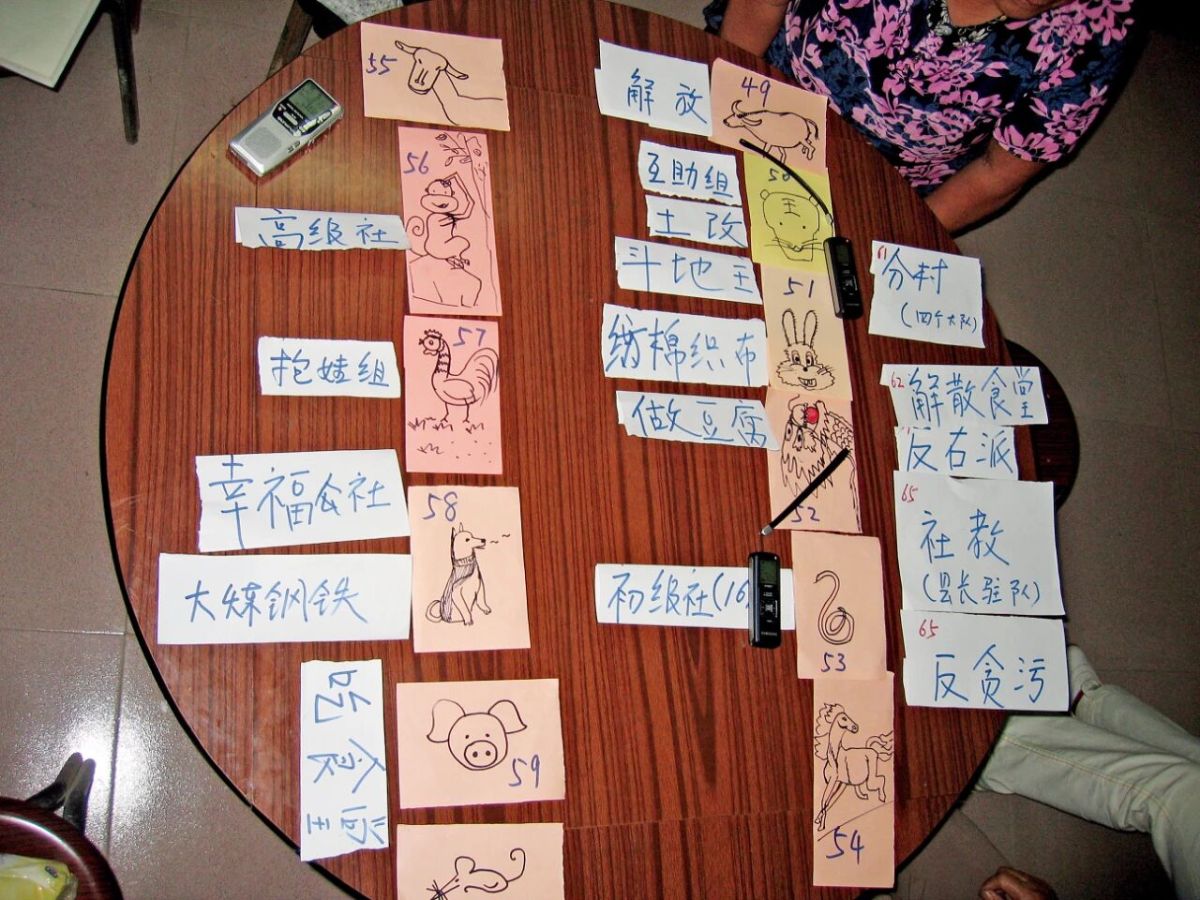 55
56
高级社
57
抱娃组
58
幸福会社
大炼钢铁
59
吃食堂
解放
49
互助组
50
王
土改
斗地主
51
纺棉织布
做豆腐
52
初级社(16
53
54
61
分村
(四个大队)
62
解散食堂
反右派
65
社教
(县长驻队)
65
反贪污